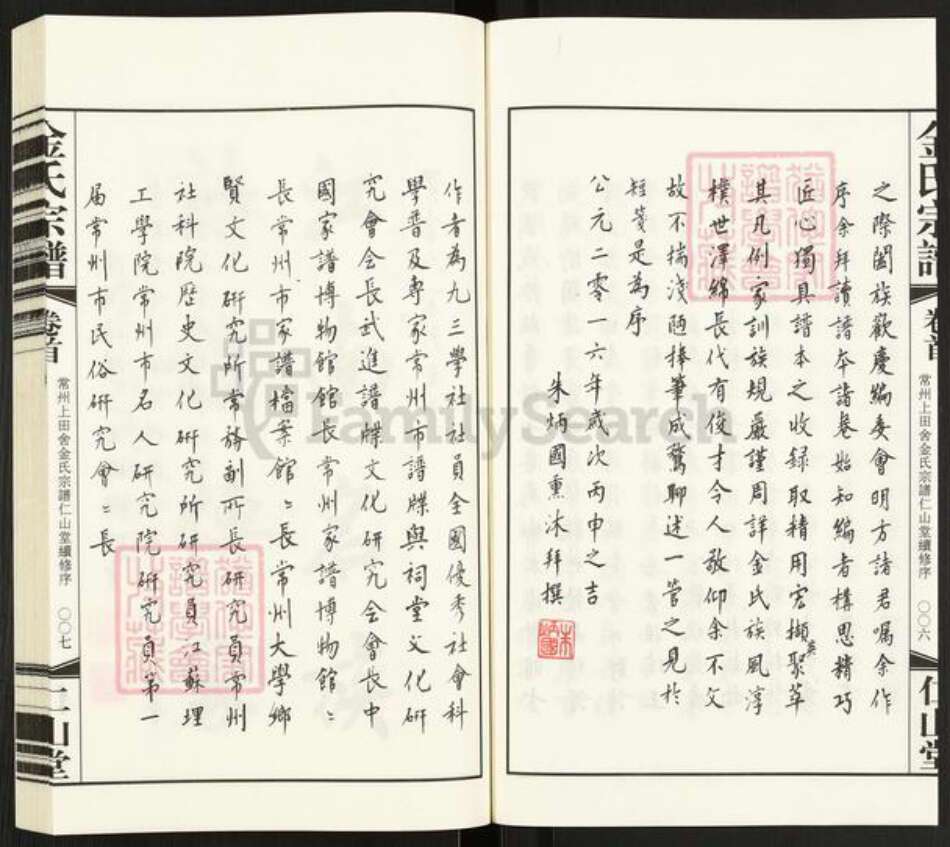 之際闔族歡慶編委會明方諸君囑余作
序余拜讀譜本諸卷始知編者構思精巧
匠心獨具譜本之收錄取精用宏擷英聚萃
其凡例家訓族規嚴謹周詳金氏族風淳
樸世澤綿長代有俊才令人敬仰余不文
故不揣淺陋捧筆成驚聊述一管之見於
短箋是為序
公元二零一六年歲次丙申之吉
朱炳國熏沐拜撰
朱炳國
金氏宗譜
卷首
常州上田舍金氏宗譜仁山堂續修序
〇〇六
仁山堂
作者為九三學社社員全國優秀社會科
學普及專家常州市譜牒與祠堂文化研
究會会長武進譜牒文化研究会會長中
國家譜博物館館長常州家譜博物館〻
長常州市家譜檔案館〻長常州大學鄉
賢文化研究所常務副所長研究員常州
社科院歷史文化研究所研究員江蘇理
工學院常州市名人研究院研究員第一
屆常州市民俗研究會〻長
金氏宗譜
卷首
常州上田舍金氏宗譜仁山堂續修序
〇〇七
仁山堂
FamilySearch